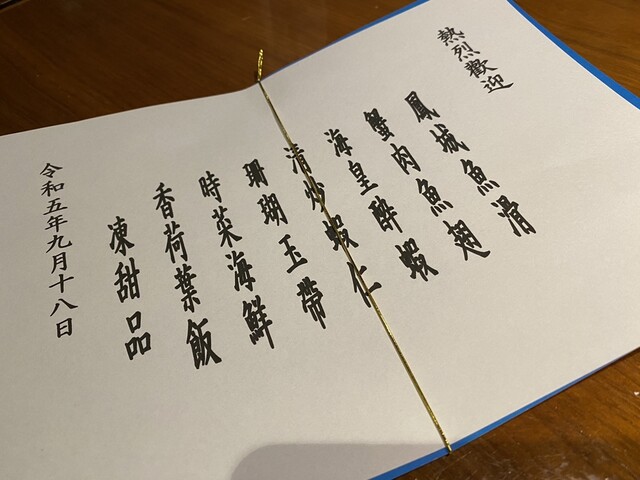 熱烈歡迎
鳳城魚滑
蟹肉魚翅
海皇酔蝦
清炒蝦仁
珊瑚玉帶
時菜海鮮
香荷葉飯
凍甜品
令和五年九月十八日